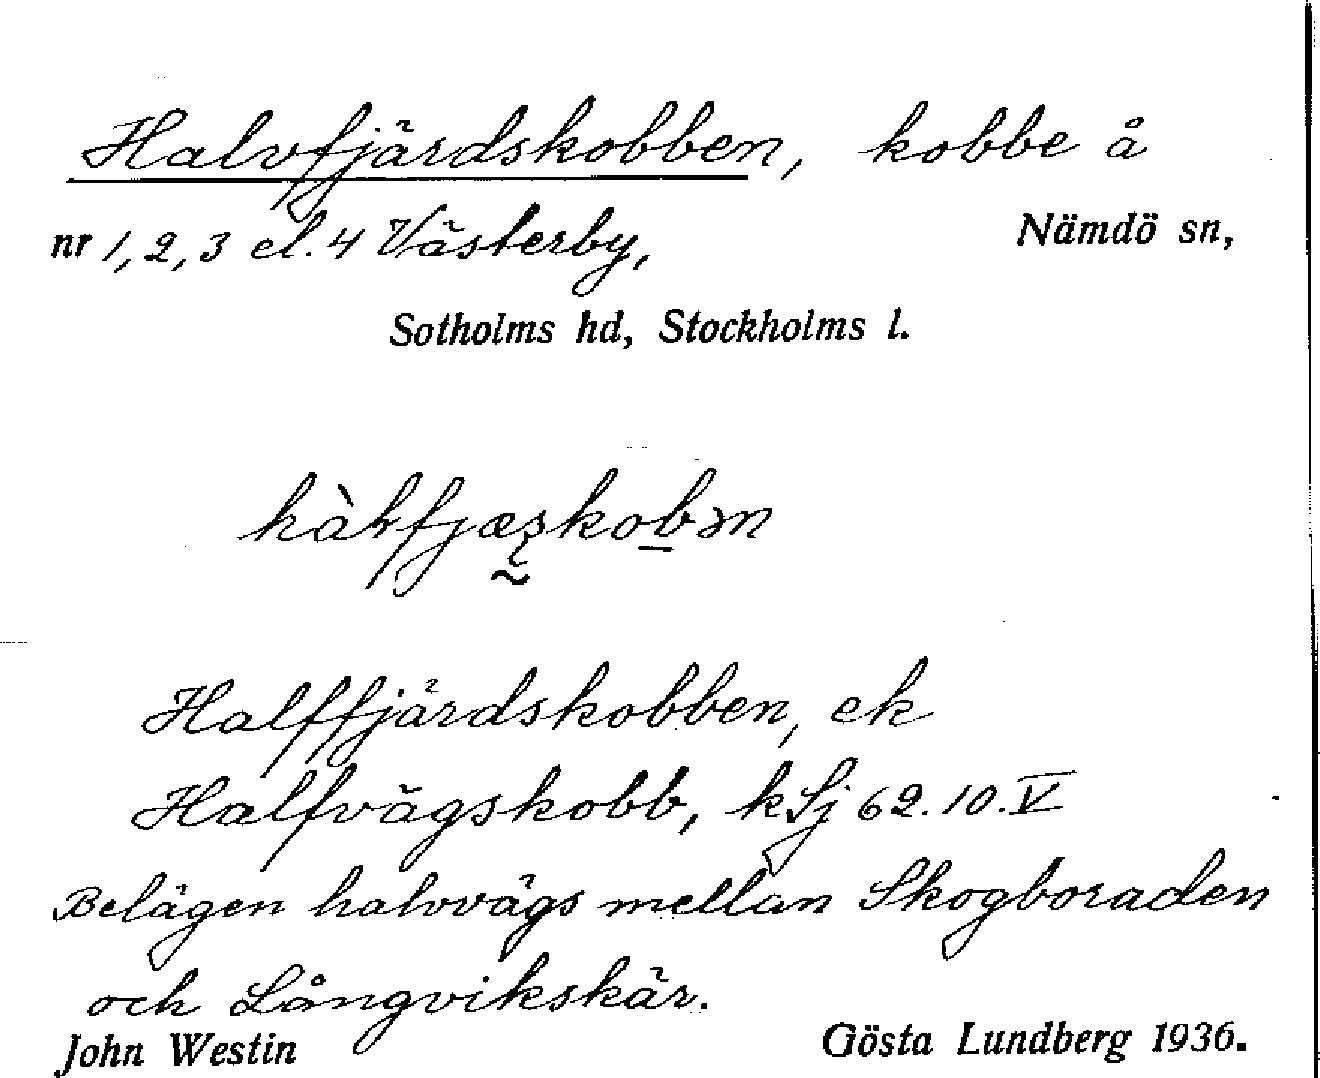 Halvfjärdskobben, kobbe å
nr 1, 2, 3 el. 4 Västerby, Nämdö sn,
Sotholms hd, Stockholms l.
Halffjärdskobben, ek
Halfvägskobb, kSj 62.10.V
Belägen halvvägs mellan Skogboraden
och Långvikskär.
John Westin Gösta Lundberg 1936.